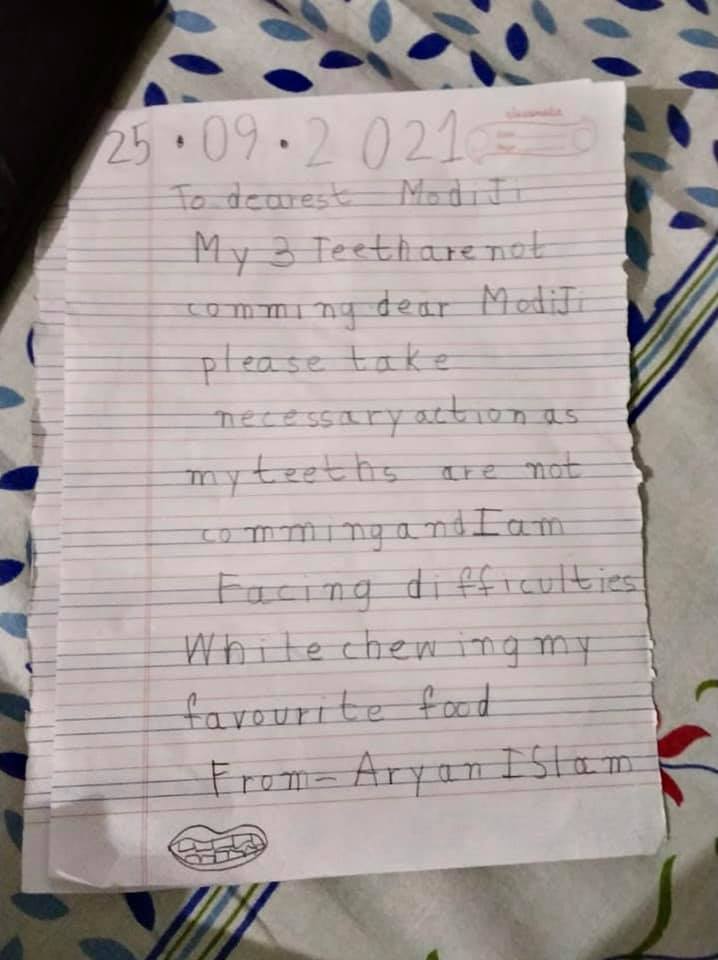 classmate
25.09.2021
To dearest ModiJi
My 3 Teeth are not
comming dear ModiJi
please take
necessary action as
my teeths are not
comming and I am
Facing difficulties
While chewing my
favourite food
From- Aryan ISlam